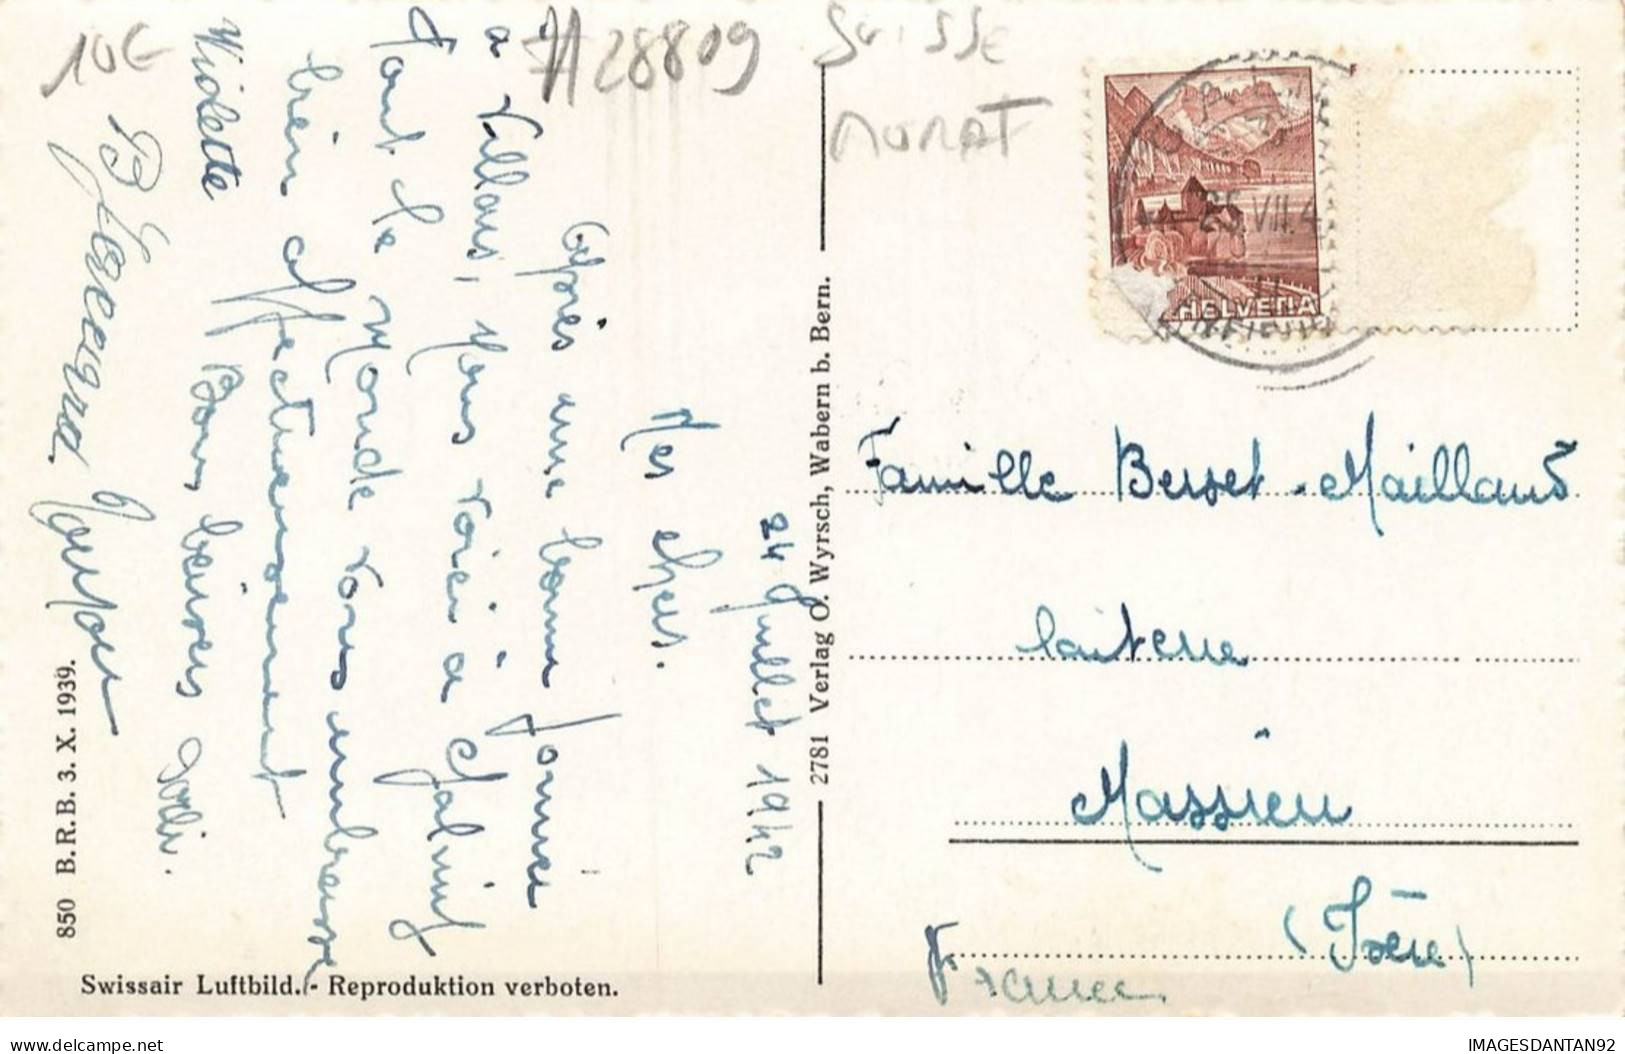 10€
#28809
SUISSE
MORAT
24 Juillet 1942
Mes chers.
Après une bonne tournée
à Villars, nous voici à
Tout le monde vous embrasse
bien affectueusement
Bons baisers
Violette
850 B.R.B. 3. X. 1939.
Swissair Luftbild. - Reproduktion verboten.
2781 Verlag O. Wyrsch, Wabern b. Bern.
HELVETIA
25.VII.4
Famille Berset-Maillard
laiterie
Massieu
(Isère)
France
delcampe.net
IMAGESDANTAN92